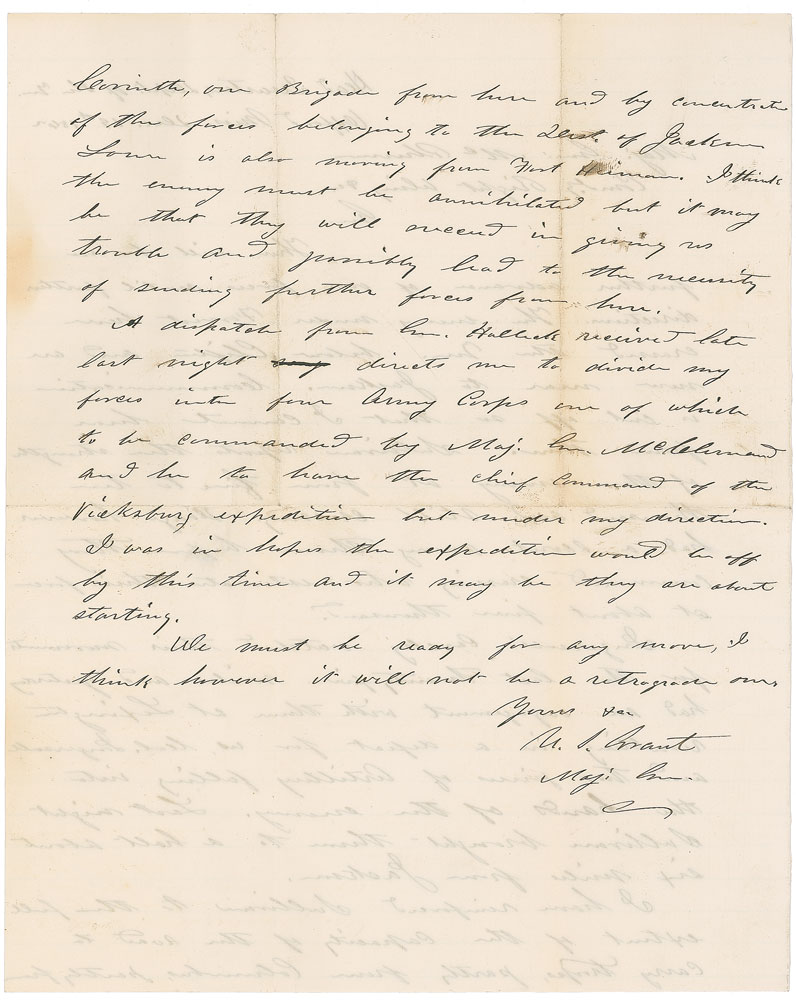 Corinth, one Brigade from here and by concentrate
of the forces belonging to the Dist. of Jackson
Lowe is also moving from Fort Heiman. I think
the enemy must be annihilated but it may
be that they will succeed in giving us
trouble and possibly lead to the necessity
of sending further forces from here.
A dispatch from Gn. Halleck received late
last night directs me to divide my
forces into four Army Corps one of which
to be commanded by Maj. Gn. McClernand
and he to have the chief command of the
Vicksburg expedition but under my direction.
I was in hopes the expedition would be off
by this time and it may be they are about
starting.
We must be ready for any move, I
think however it will not be a retrograde one.
Yours &c
U. S. Grant
Maj. Gn.